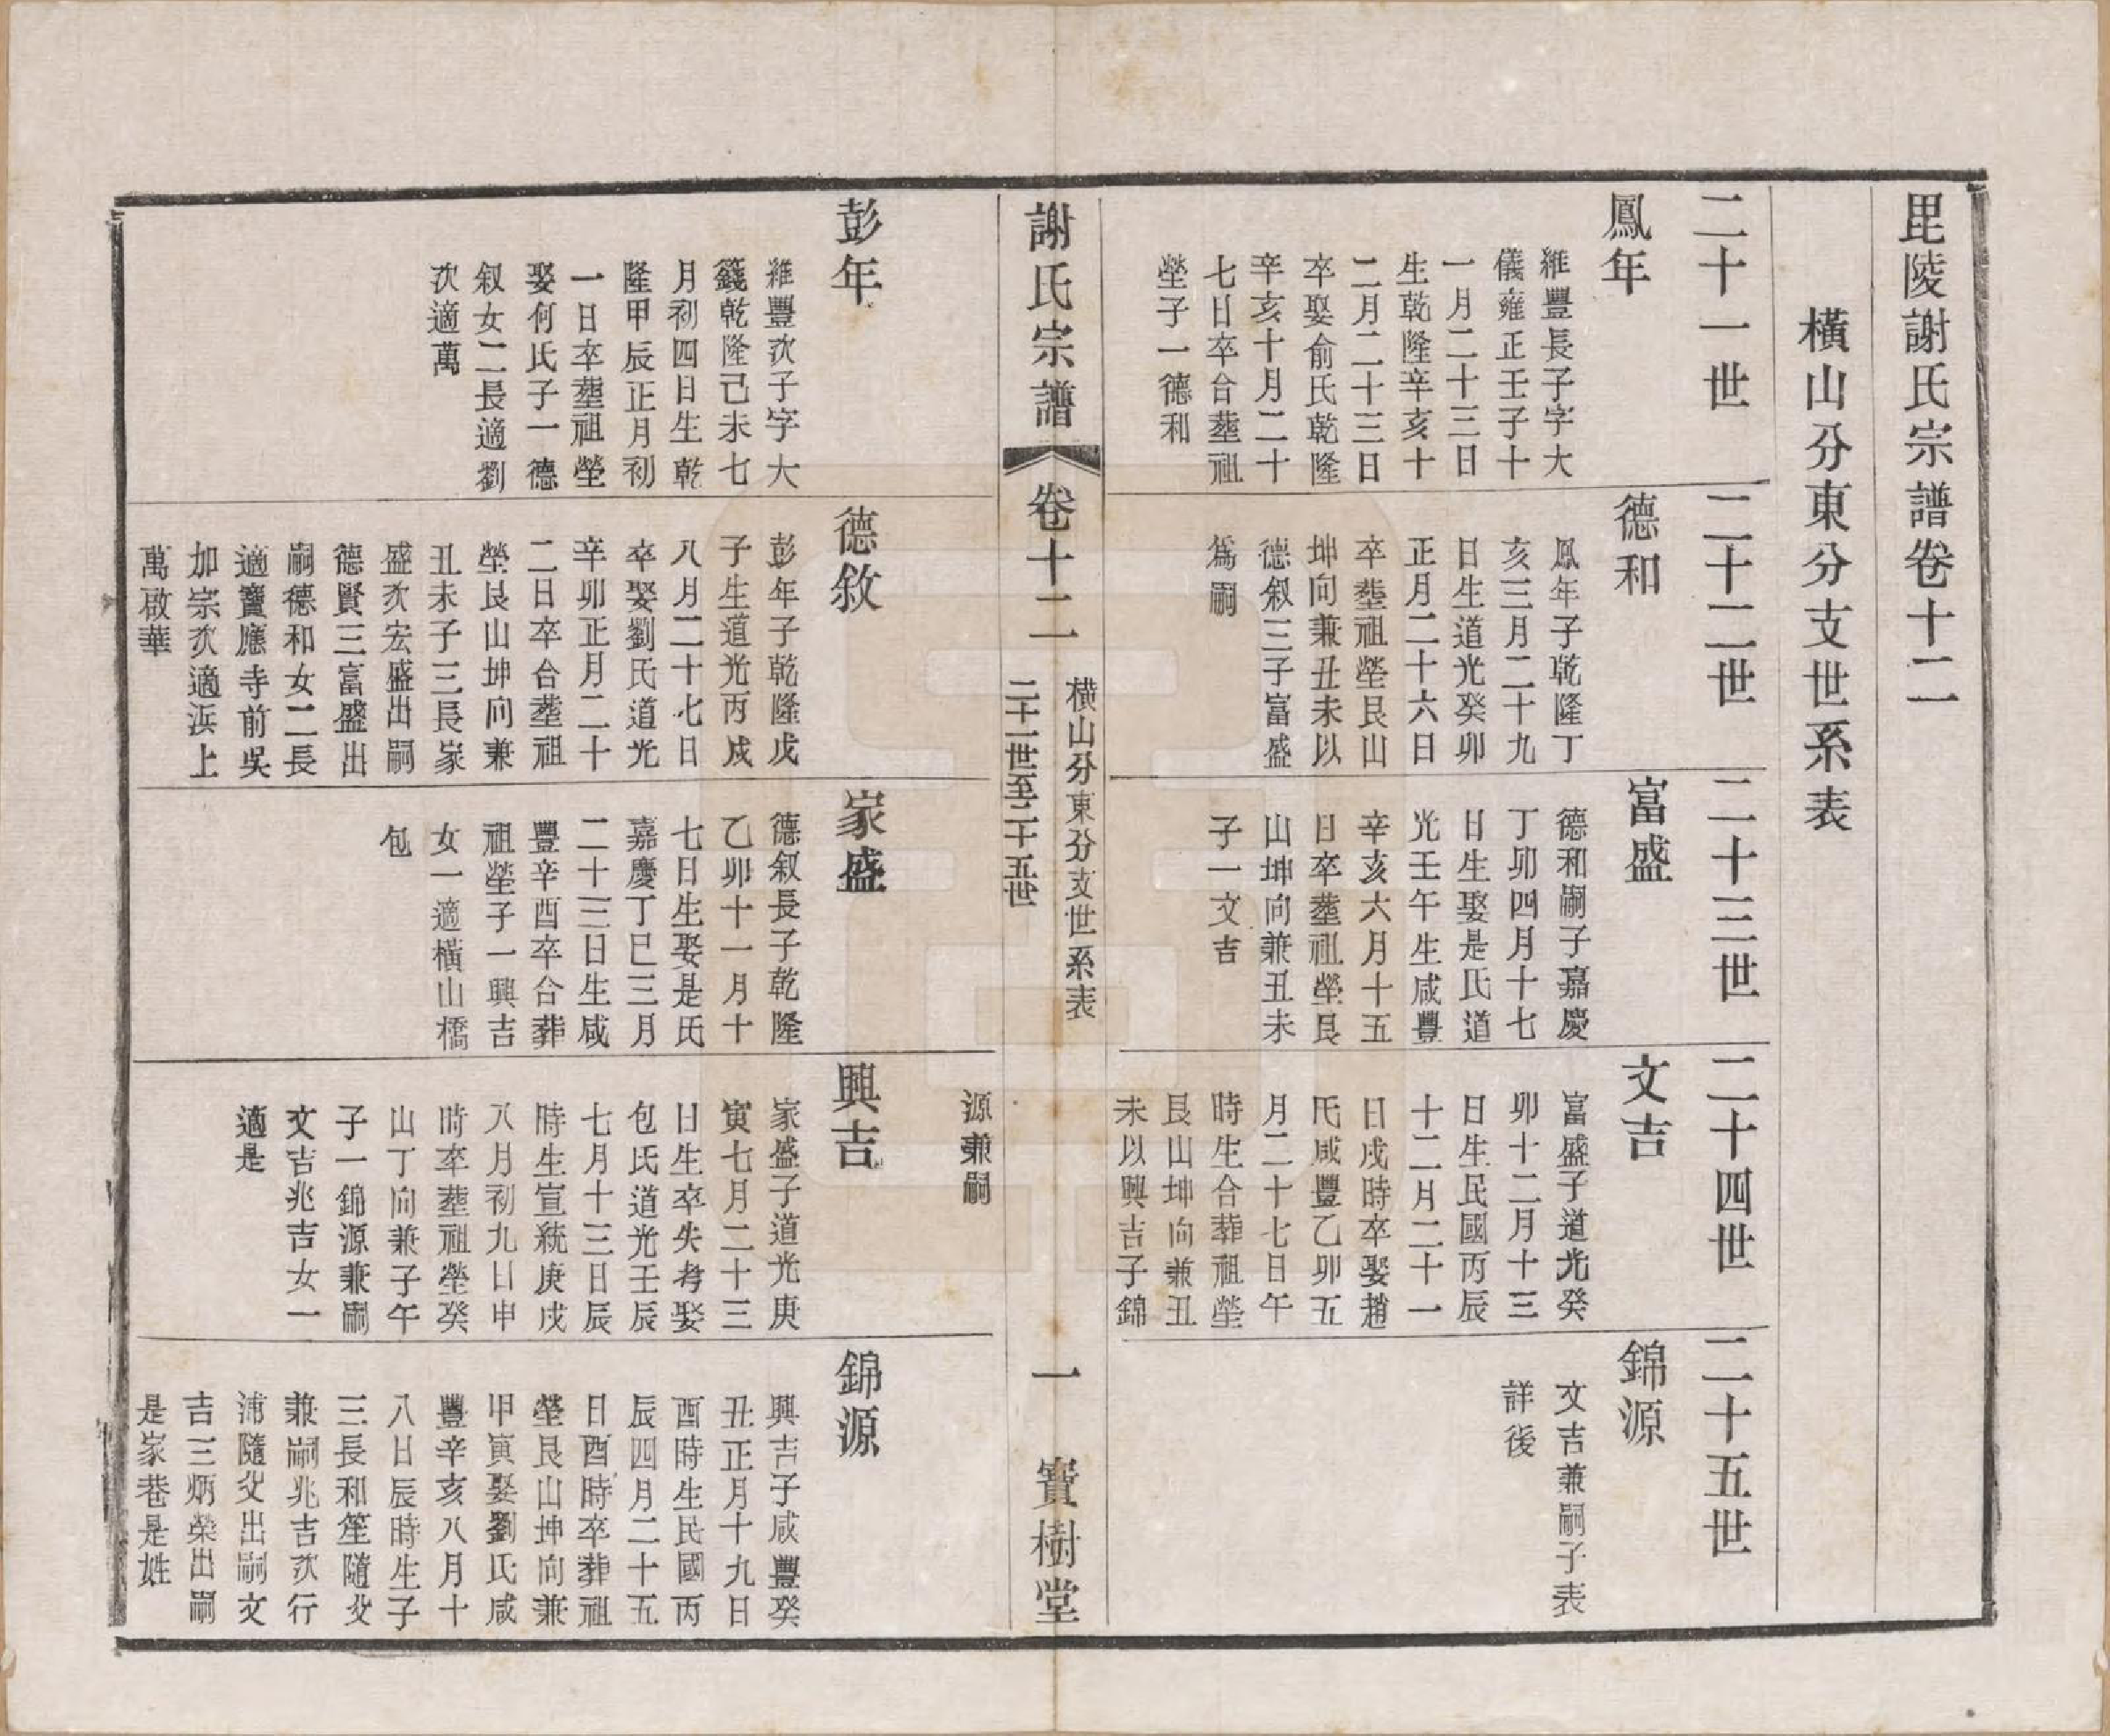 毘陵謝氏宗譜卷十二
橫山分東分支世系表
二十一世
二十二世
二十三世
二十四世
二十五世
鳳年
維豐長子字大
儀雍正壬子十
一月二十三日
生乾隆辛亥十
二月二十三日
卒娶俞氏乾隆
辛亥十月二十
七日卒合塟祖
塋子一德和
德和
鳳年子乾隆丁
亥三月二十九
日生道光癸卯
正月二十六日
卒塟祖塋艮山
坤向兼丑未以
德叙三子富盛
爲嗣
富盛
德和嗣子嘉慶
丁卯四月十七
日生娶是氏道
光壬午生咸豐
辛亥六月十五
日卒塟祖塋艮
山坤向兼丑未
子一文吉
文吉
富盛子道光癸
卯十二月十三
日生民國丙辰
十二月二十一
日戌時卒娶趙
氏咸豐乙卯五
月二十七日午
時生合葬祖塋
艮山坤向兼丑
未以興吉子錦
源兼嗣
錦源
文吉兼嗣子表
詳後
謝氏宗譜
卷十二
橫山分東分支世系表
二十一世至二十五世
一
寶樹堂
彭年
維豐次子字大
籛乾隆己未七
月初四日生乾
隆甲辰正月初
一日卒塟祖塋
娶何氏子一德
叙女二長適劉
次適萬
德敘
彭年子乾隆戊
子生道光丙戌
八月二十七日
卒娶劉氏道光
辛卯正月二十
二日卒合塟祖
塋艮山坤向兼
丑未子三長家
盛次宏盛出嗣
德賢三富盛出
嗣德和女二長
適寶應寺前吳
加宗次適浜上
萬啟華
家盛
德叙長子乾隆
乙卯十一月十
七日生娶是氏
嘉慶丁巳三月
二十三日生咸
豐辛酉卒合葬
祖塋子一興吉
女一適橫山橋
包
興吉
家盛子道光庚
寅七月二十三
日生卒失考娶
包氏道光壬辰
七月十三日辰
時生宣統庚戌
八月初九日申
時卒塟祖塋癸
山丁向兼子午
子一錦源兼嗣
文吉兆吉女一
適是
錦源
興吉子咸豐癸
丑正月十九日
酉時生民國丙
辰四月二十五
日酉時卒葬祖
塋艮山坤向兼
甲寅娶劉氏咸
豐辛亥八月十
八日辰時生子
三長和笙隨父
兼嗣兆吉次行
沛隨父出嗣文
吉三炳榮出嗣
是家巷是姓